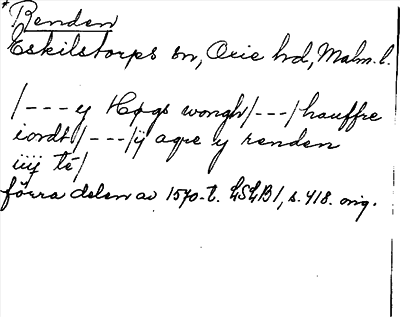 *Renden
Eskilstorps sn, Oxie hd, Malm. l.
/---y Høgs wongh/---/hauffre
iordt/---/ij agre y renden
iiij té/
förra delen av 1570-t. LSLB1, s. 418. orig.